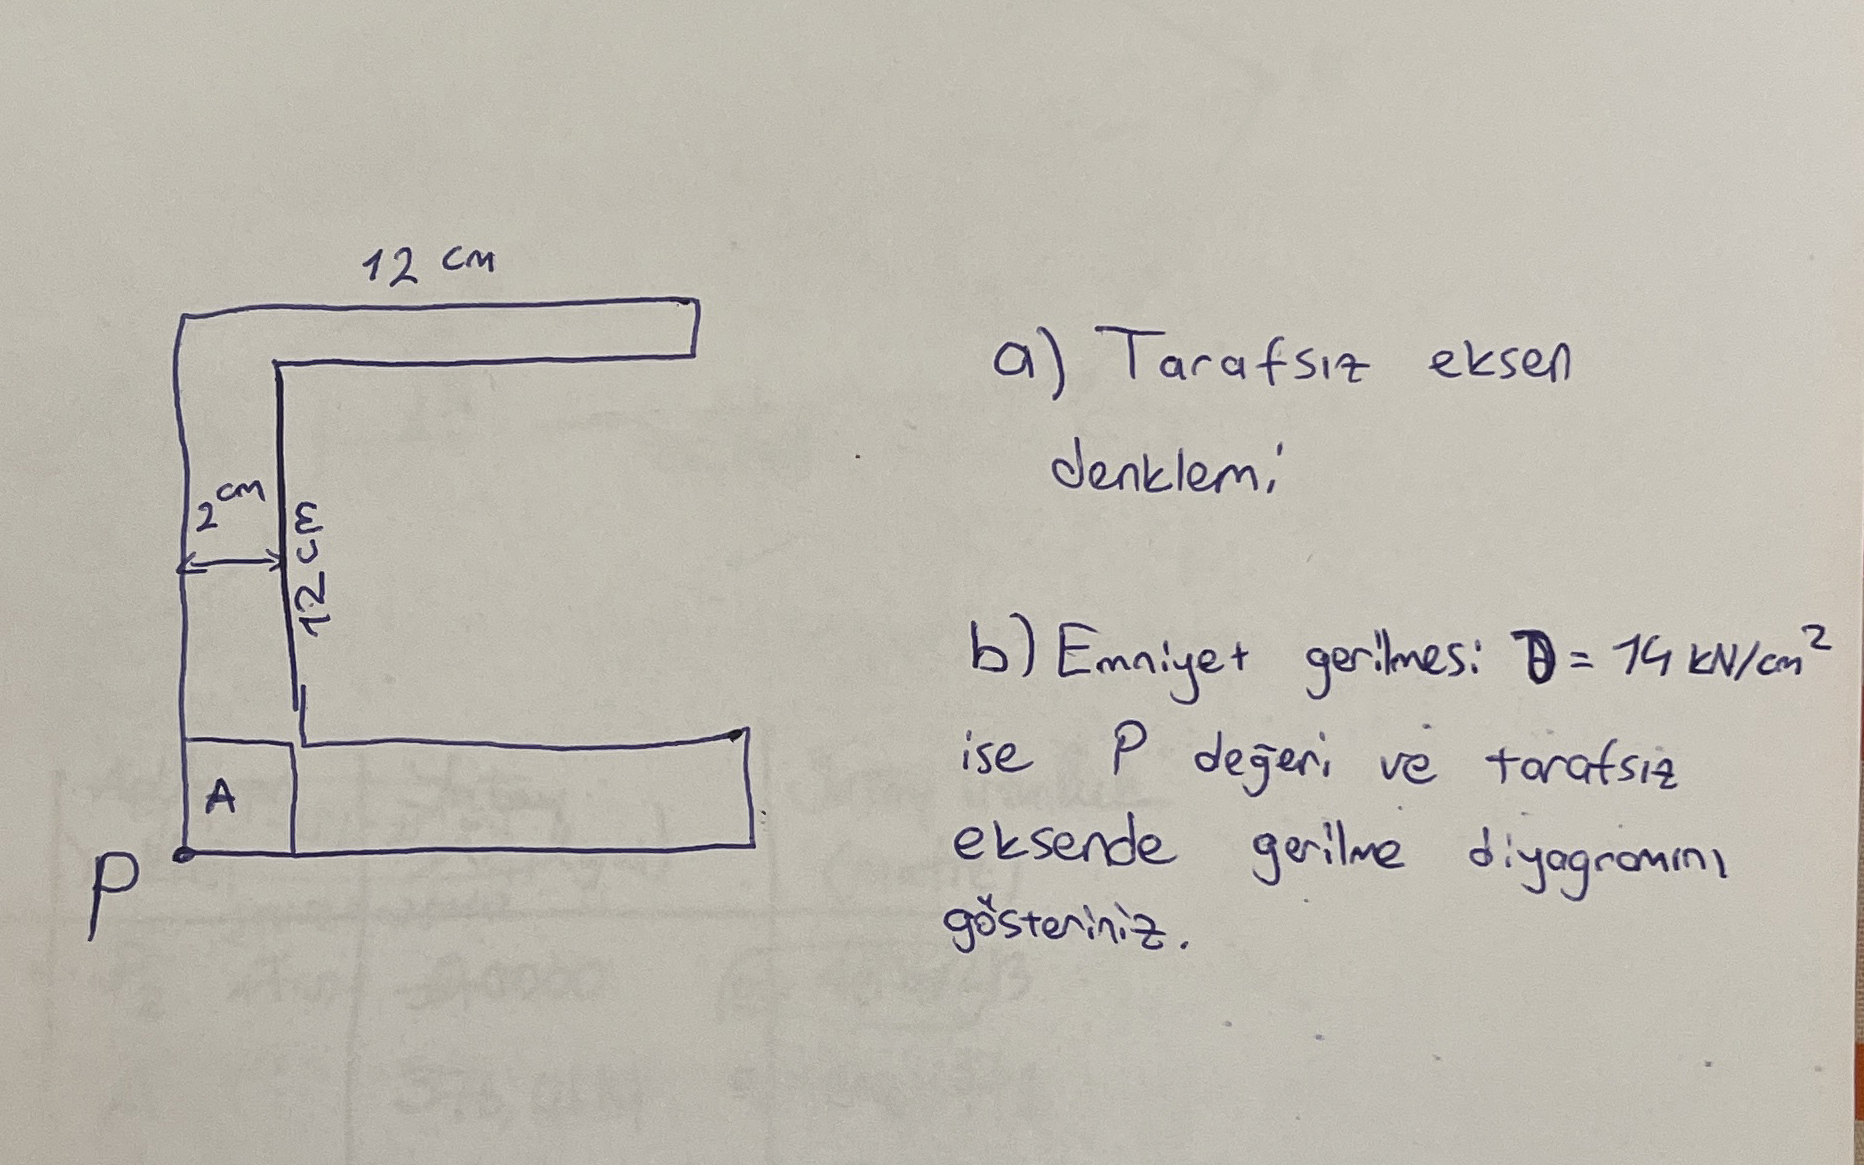 12 cm
2 cm
12 cm
A
P
a) Tarafsız eksen
denklemi
b) Emniyet gerilmesi = 14 kN/cm²
ise P değeri ve tarafsız
eksende gerilme diyagramını
gösteriniz.